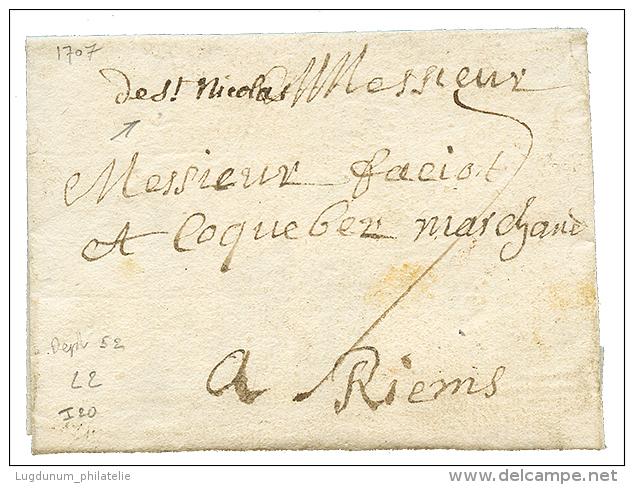 1707
de st Nicolas Messieur
Messieur faciot
et Coqueber marchand
a Riems
Deph 52
L2
I20
Lugdunum_philatelie
www.delcampe.net